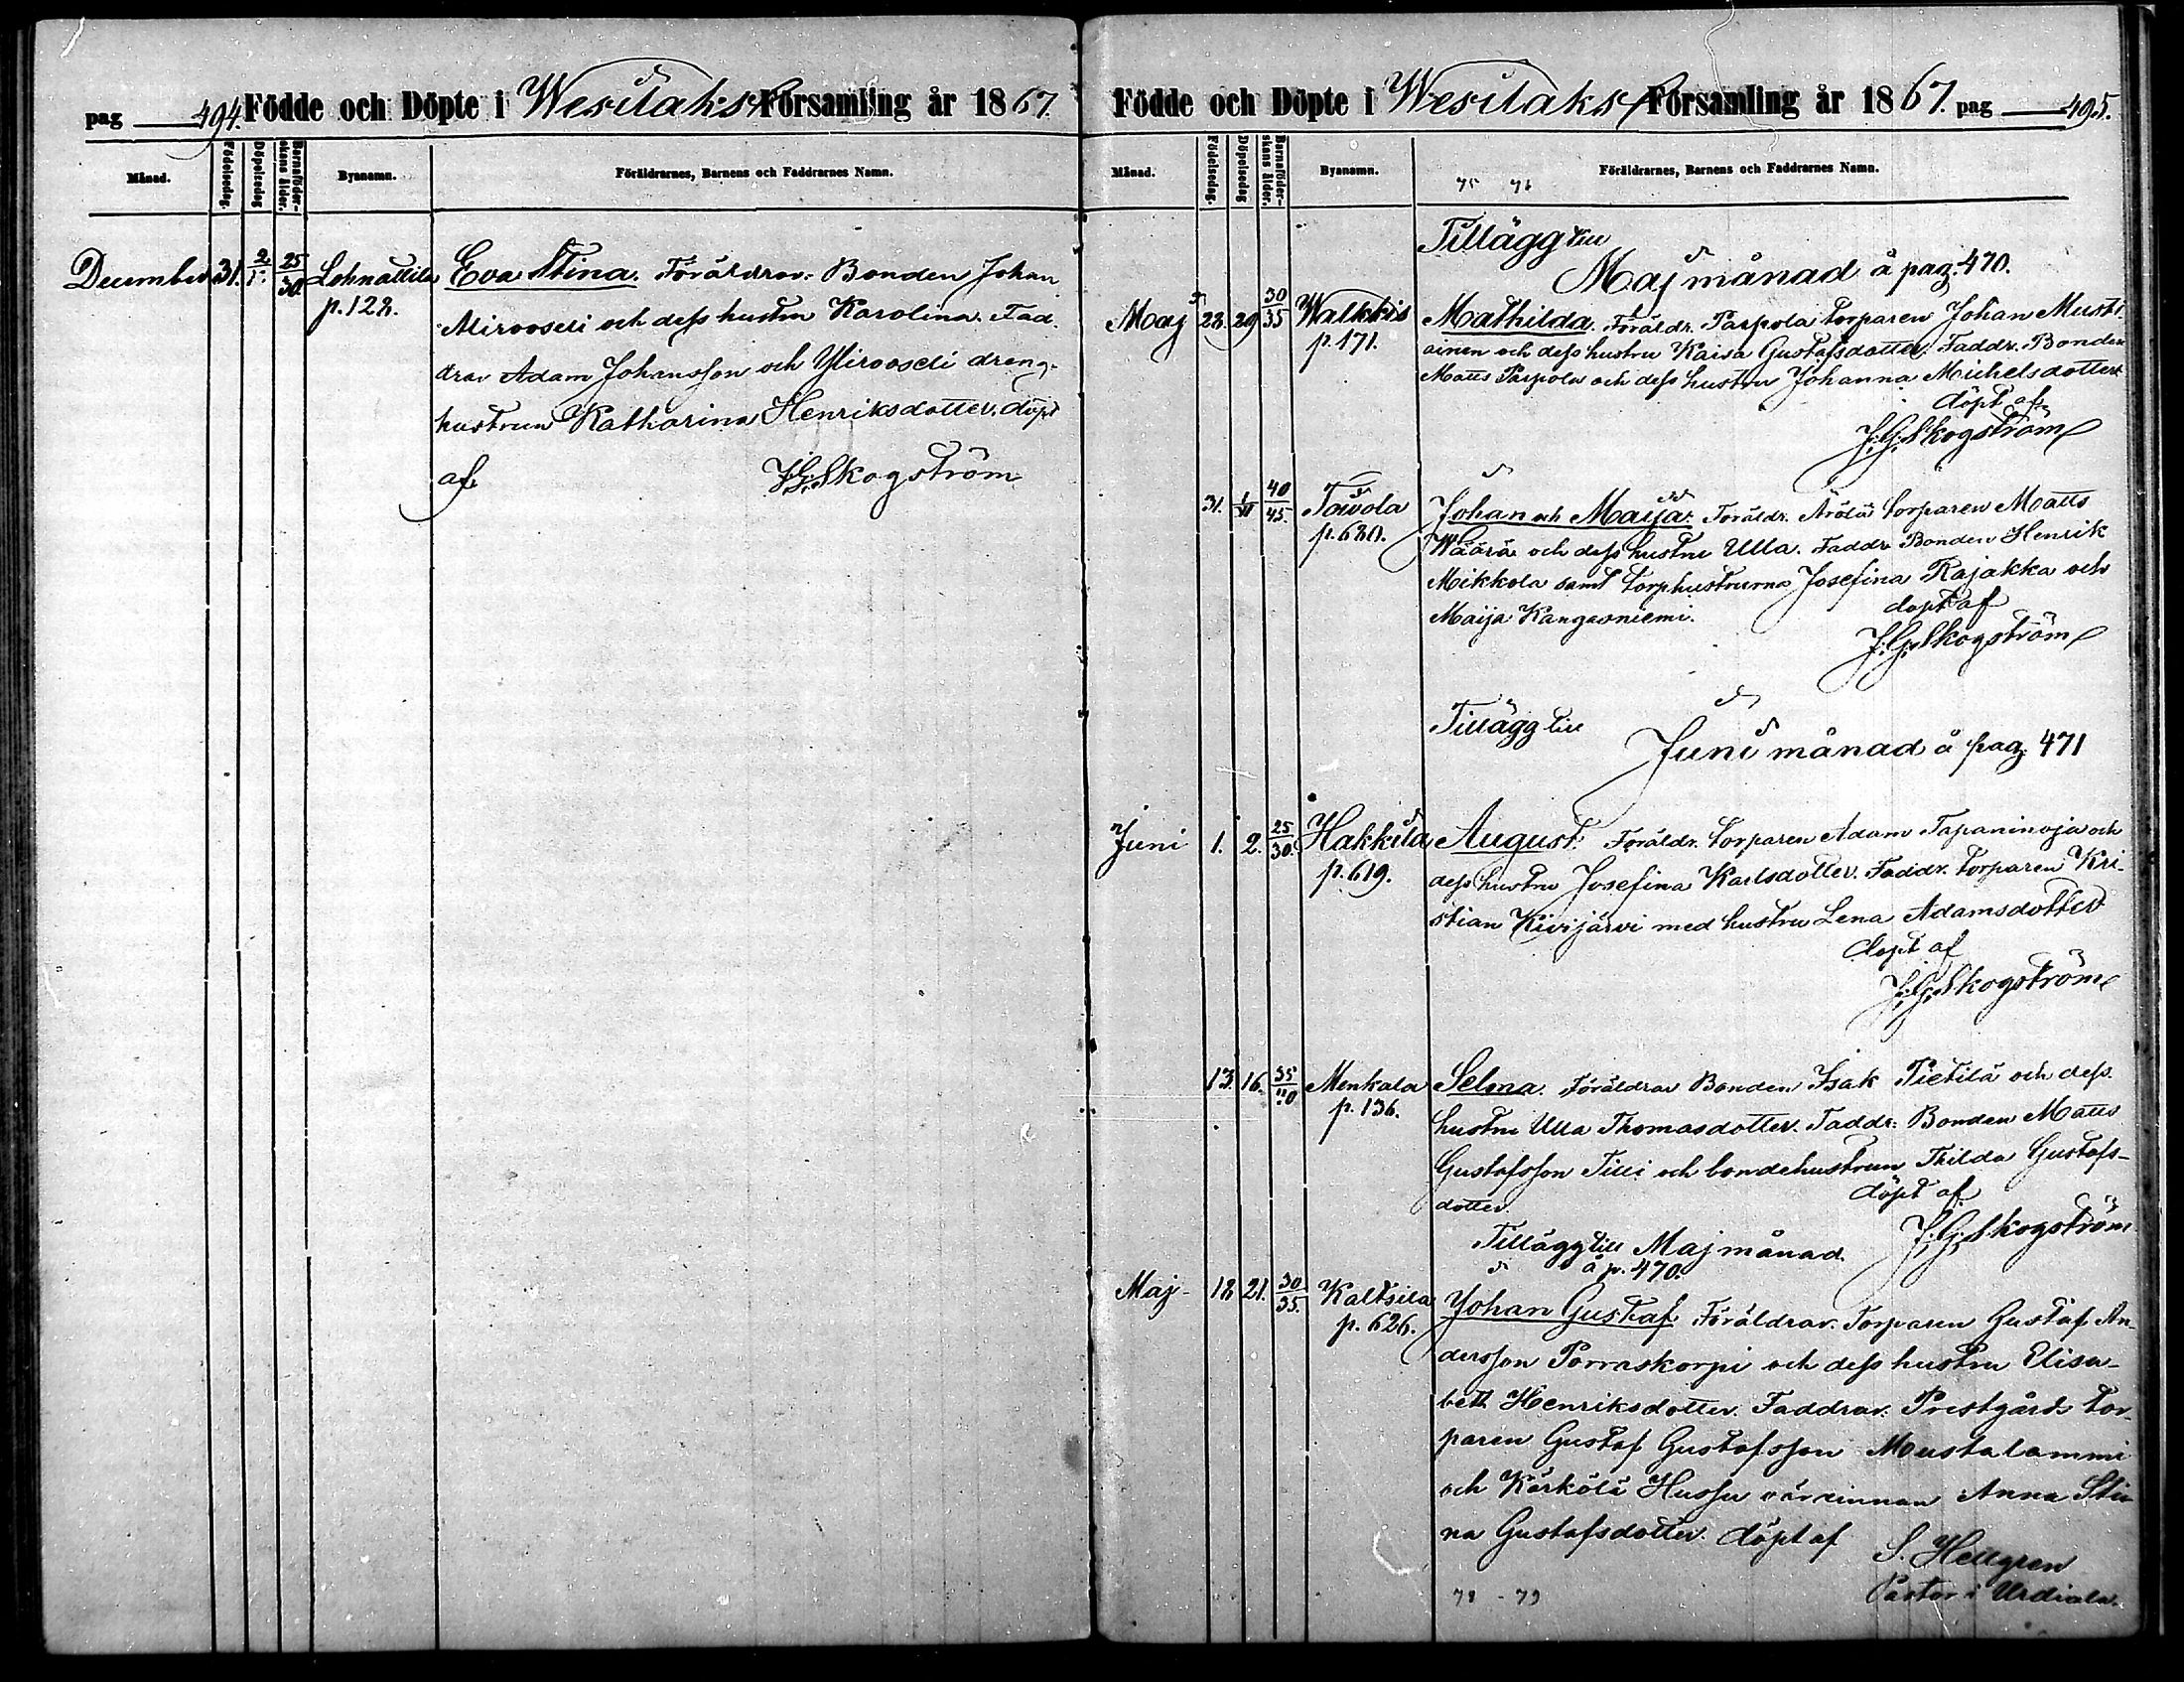 pag 494. Födde och Döpte i Wesilaks Församling år 1867.
Månad. Födelsedag. Döpelsedag Barnaföderskans ålder. Byanamn. Föräldrarnes, Barnens och Faddrarnes Namn.
December 31. 2/1. 25/30. Lehnällilä Eva Stina. Föräldrar: Bonden Johan
p. 128. Alirooseli och dess hustru Karolina. Fad.
drar Adam Johansson och Ylirooseli dreng-
hustrun Katharina Henriksdotter. döpt
af J.G. Skogström
Födde och Döpte i Wesilaks Församling år 1867. pag 495.
Månad. Födelsedag. Döpelsedag Barnaföderskans ålder. Byanamn. Föräldrarnes, Barnens och Faddrarnes Namn.
75 76
Tillägg till
Maj månad å pag. 470.
Maj 28. 29 30/35 Walkkis Mathilda. Föräldr. Parpola torparen Johan Musti-
p. 171. ainen och dess hustru Kaisa Gustafsdotter. Faddr. Bonden
Matts Parpola och dess hustru Johanna Michelsdotter
döpt af
J.G. Skogström
31. 40/45. Towola Johan och Maija. Föräldr. Ärölä torparen Matts
p. 620. Wäärä och dess hustru Ulla. Faddr. Bonden Henrik
Mikkola samt torphustrurna Josefina Rajakka och
Maija Kangasniemi. döpt af
J.G. Skogström
Tillägg till
Juni månad å pag. 471
Juni 1. 2. 25/30. Hakkila August. Föräldr. torparen Adam Tapaninoja och
p. 619. dess hustru Josefina Karlsdotter. Faddr. torparen Kri-
stian Kivijärvi med hustru Lena Adamsdotter
döpt af
J.G. Skogström
13. 16. 35/40 Menkala Selma. Föräldrar Bonden Isak Pietilä och dess
p. 136. hustru Ulla Thomasdotter. Faddr: Bonden Matts
Gustafsson Tilli och bondehustrun Thilda Gustafs-
dotter. döpt af
J.G. Skogström
Tillägg till Maj månad.
å p. 470.
Maj- 18 21. 30/35. Kaltsila Johan Gustaf. Föräldrar. Torparen Gustaf An-
p. 626. dersson Porraskorpi och dess hustru Elisa-
beth Henriksdotter. Faddrar: Prestgårds tor-
paren Gustaf Gustafsson Mustalammi
och Kärkölä Hussu värdinnan Anna Sti-
na Gustafsdotter. döpt af S. Hellgren
78 - 79 Pastor i Urdiala.